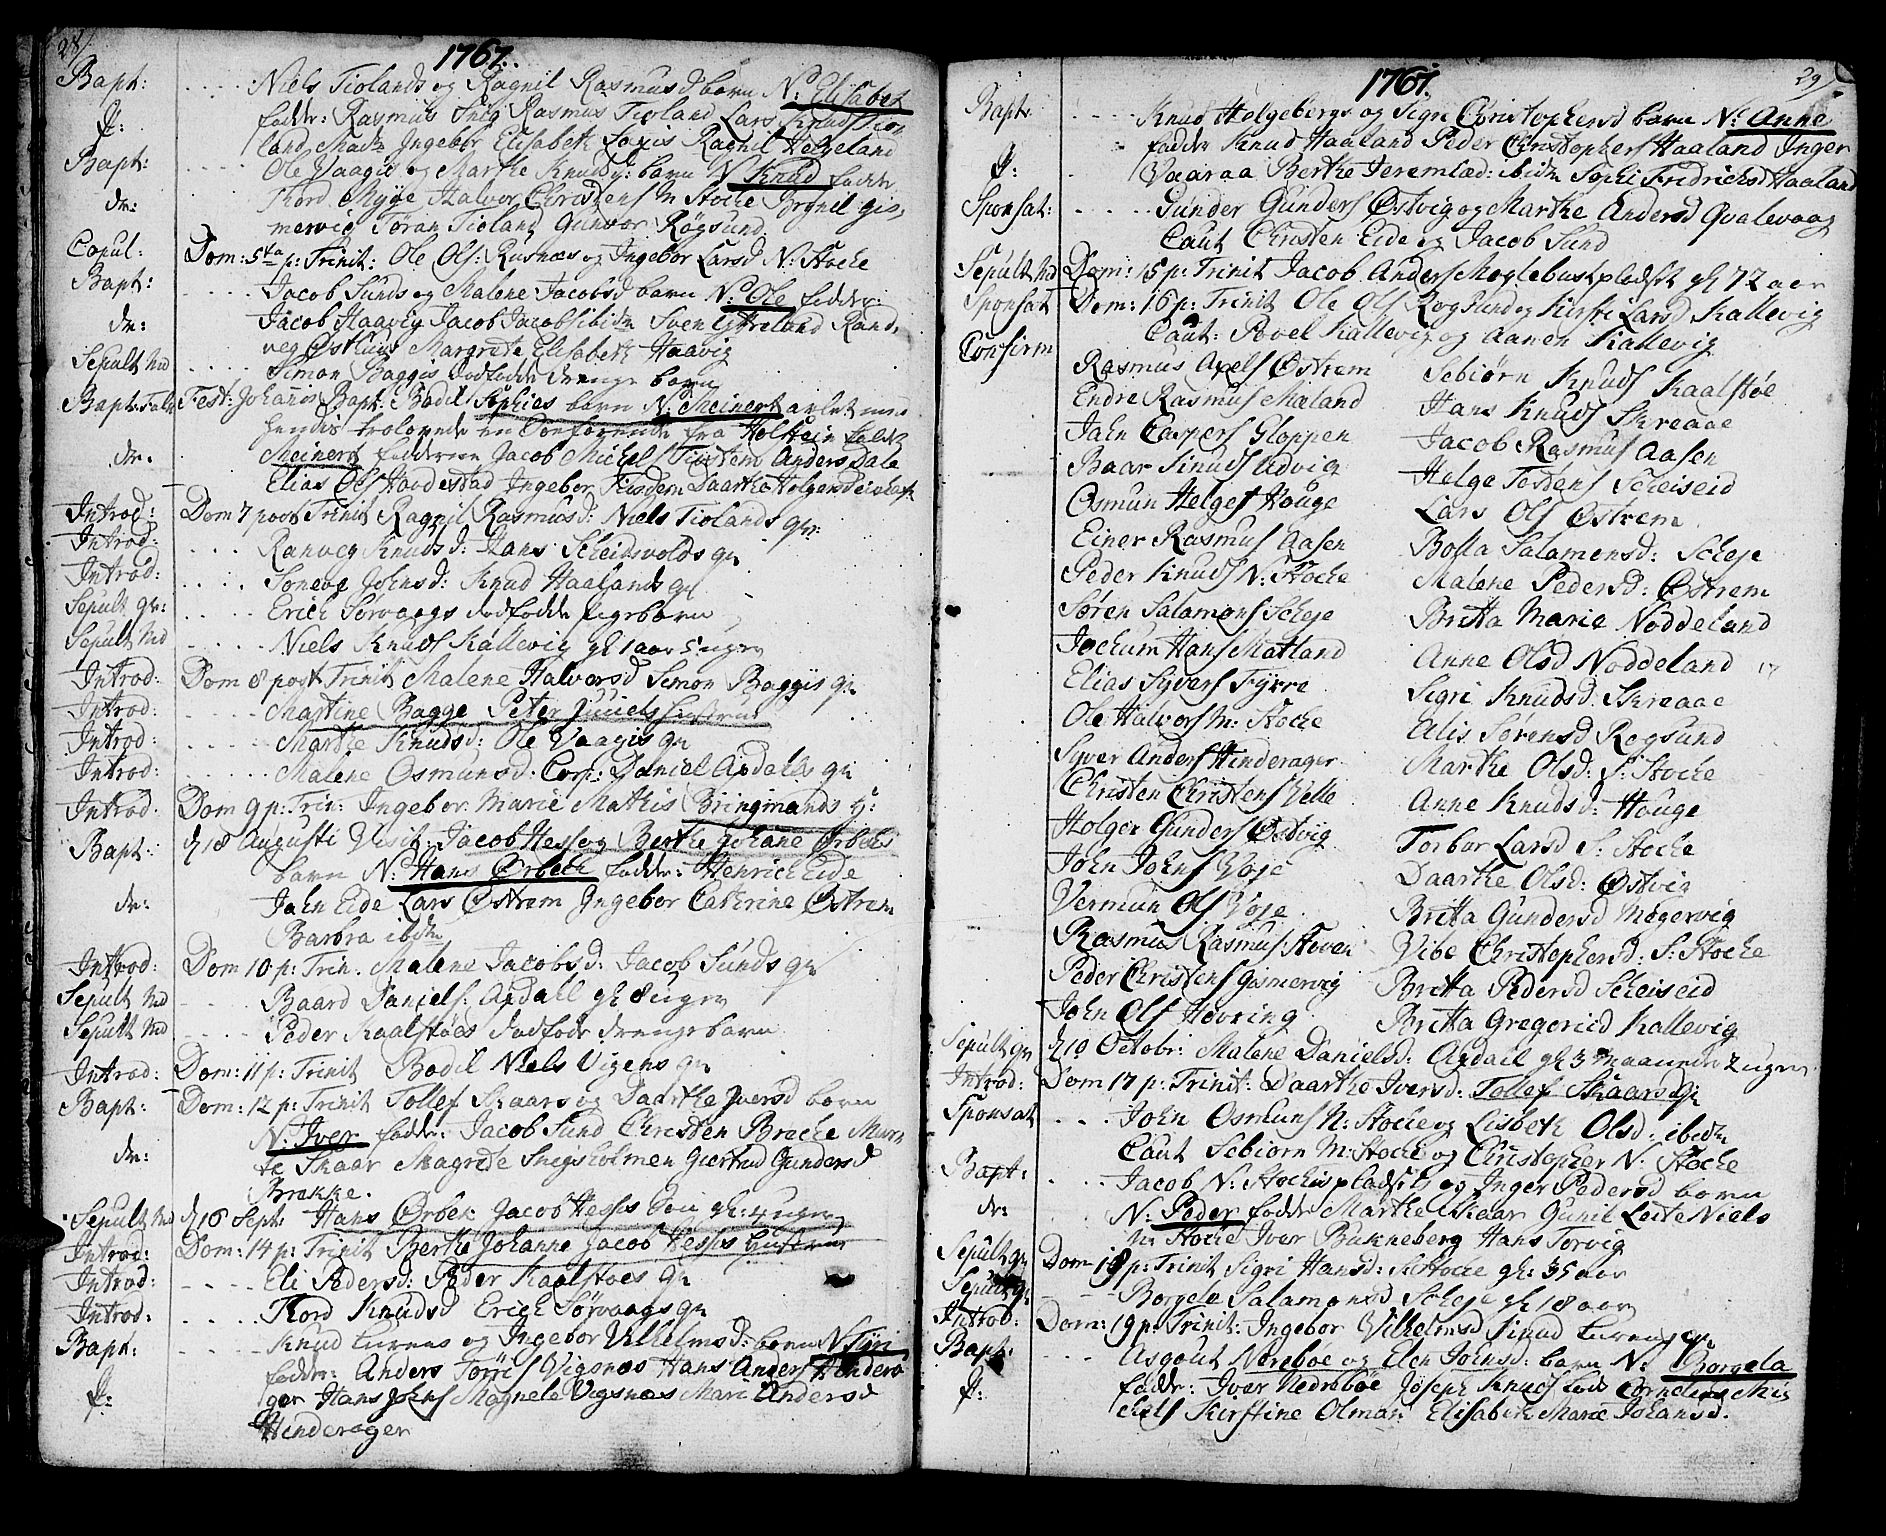 28/
1767.
Bapt: .... Niels Tiolands og Ragnil Rasmusd barn N: Elisabet
f: fadd: Rasmus Snig Rasmus Tioland Lars Knuds Tio,
land, Mads Ingebor Elisabeth Ragnil Helgeland
Bapt: .... Ole Vaagis og Marthe Knudsd: barn N Knud fadd:
de: Thord Myge Halvor Christens M Stoche Borgnil gis,
mervig Tøran Tioland Gunvor Røgsund.
Copul: Dom: 5ta p: Trinit: Ole Ols: Rusnæs og Ingebor Larsd N: Stoche
Bapt: .... Jacob Sunds og Malene Jacobsd barn N: Ole fadd:
de: Jacob Haavig Jacob Jacobs ibidm Sven Ytreland Rand,
veg Østhus Margrete Elisabeth Haavig
Sepult Md .... Simon Baggis dødfødde drenge barn
Bapt: Fest: Johannis Bapt: Bodil Sophies barn N: Meinert avlet m:
hendis trolovede en Confarende fra Holstein
Meinert fadderne Jacob Michel Tiostem Anders Dale
de: Elias Ols Havdestad Ingebor Daarthe
Introd: Dom 7 post Trinit Ragnil Rasmusd: Niels Tiolands qv:
Introd: .... Ranveg Knudsd: Hans Scheidsvolds qv
Introd: .... Soneve Johnsd: Knud Haalands qv
Sepult qv: .... Erich Sørvaags dødfødde pigebarn
Sepult Md .... Niels Knuds Kallevig gl 1 aar 5 uger
Introd: Dom 8 post Trinit Malene Halvorsd Simon Baggis qv
Introd: .... Martine Bagge Peter Juuels Hustrue
Introd: .... Marthe Knudsd: Ole Vaagis qv
Introd: .... Malene Osmunsd: Corp: Daniel Apdals qv
Introd: Dom 9 p: Trin: Ingebor Marie Mathis Bringmands q:
Bapt: d 18 Augusti Visit: Jacob Hesse og Berthe Johane Ørbeks
barn N: Hans Ørbech fadd: Henrich Eide
de: John Eide Lars Østrem Ingebor Cathrine Østrem
Barbra ibidm
Introd: Dom 10 p: Trin. Malene Jacobsd: Jacob Sunds qv
Sepult Md .... Baard Daniels: Apdahl gl 8 uger
Sepult Md .... Peder Kaalstøes dødfødde drengebarn
Introd: Dom: 11 p: Trinit Bodil Niels Vigens qv
Bapt: Dom: 12 p: Trinit Tollef Skaars og Daarthe Iversd barn
N: Iver fadd: Jacob Sund Christen Breche Mar,
de: te Skaar Magrete Snigsholmen Giertrud Gundersd
Brekke.
Sepult Md d 18 Septr Hans Ørbek Jacob Hesses Søn gl: 4 uger
Introd: Dom: 14 p: Trinit Berthe Johanne Jacob Hesses Hustrue
Introd: .... Eli Pedersd: Peder Kaalstøes qv
Introd: .... Thord Knudsd Erich Sørvaags qv
Bapt: .... Knud Turens og Ingebor Vilhelmsd: barn N Syri
fadd: Anders Torris Vigsnæs Hans Anders Hindera,
f: ger Hans Johns Magnele Vigsnæs Mari Andersd
Hinderager
1767.
29/
Bapt: .... Knud Helgebergs og Sigri Christophersd barn N: Anne
f: fadder Knud Haaland Peder Christophers Haaland Inger
Vaaraa Berthe Jeremiæd: ibidm Sophi Fredrichsd Haaland
Sponsat: .... Gunder Gunders Østvig og Marthe Andersd Qvalevaag
Caut Christen Eide og Jacob Sund
Sepult Md Dom: 15 p: Trinit Jacob Anders Moglebust pladsit gl 72 aar
Sponsat Dom: 16 p: Trinit Ole Ols Rogsund og Kirsti Larsd Kallevig
Caut: Povel Kallevig og Aanen Kallevig
Confirm
Rasmus Axels Østrem
Endre Rasmus Mæland
John Caspers Gloppen
Baar Knuds Udvig
Osmun Helges Houge
Einer Rasmus Aasen
Peder Knuds N: Stoche
Søren Salamons Scheje
Jochum Hans Matland
Elias Syvers Fyrre
Ole Halvors M: Stoche
Syver Anders Hinderager
Christen Christens Velle
Holger Gunders Østvig
John Johns Voje
Vermun Ols Voje
Rasmus Rasmus: Stoven
Peder Christens Gismervig
John Ols Høvring
Sebiørn Knuds Kaalstøe
Hans Knuds Skreaae
Jacob Rasmus Aasen
Helge Tostens Scheiseid
Lars Ols Østrem
Bolla Salamonsd: Scheje
Malene Pedersd: Østrem
Britta Marie Noddeland
Anne Olsd Noddeland
Sigri Knudsd: Skreaae
Alis Sørensd Rogsund
Marthe Olsd: S: Stoche
Anne Knudsd: Houge
Torbor Larsd S: Stoche
Daarthe Olsd: Østvig
Britta Gundersd Møgervig
Vibe Christophersd: S: Stoche
Britta Pedersd Scheiseid
Britta Gregoriid Kallevig
Sepult qv d 10 Octobr: Malene Danielsd: Apdall gl 3 maaneder 2 uger
Introd: Dom 17 p: Trinit: Daarthe Iversd: Tollef Skaars qv
Sponsat .... John Osmuns N: Stoche og Lisbeth Olsd: ibidm
Caut Sebiørn M: Stoche og Christopher N: Stoche
Bapt: .... Jacob N: Stochis pladsit og Inger Pedersd barn
de: N: Peder fadd: Marthe Skaar Gunil Lode Niels
N: Stoche Iver Bukneberg Hans Torvig
Sepult qv Dom 18 p: Trinit Sigri Hansd: S: Stoche gl: 35 aar
Sepult qv .... Borgela Salamonsd Scheje gl 18 aar
Introd: Dom: 19 p: Trinit: Ingebor Vilhelmsd Knud Turens qv
Bapt: .... Asgout Nerebøe og Elen Johnsd: barn N: Borgela
f: fadd: Iver Nedrebøe Joseph Knuds Cornelius Mi,
chels Kirstine Olman Elisabeth Marie Johansd.